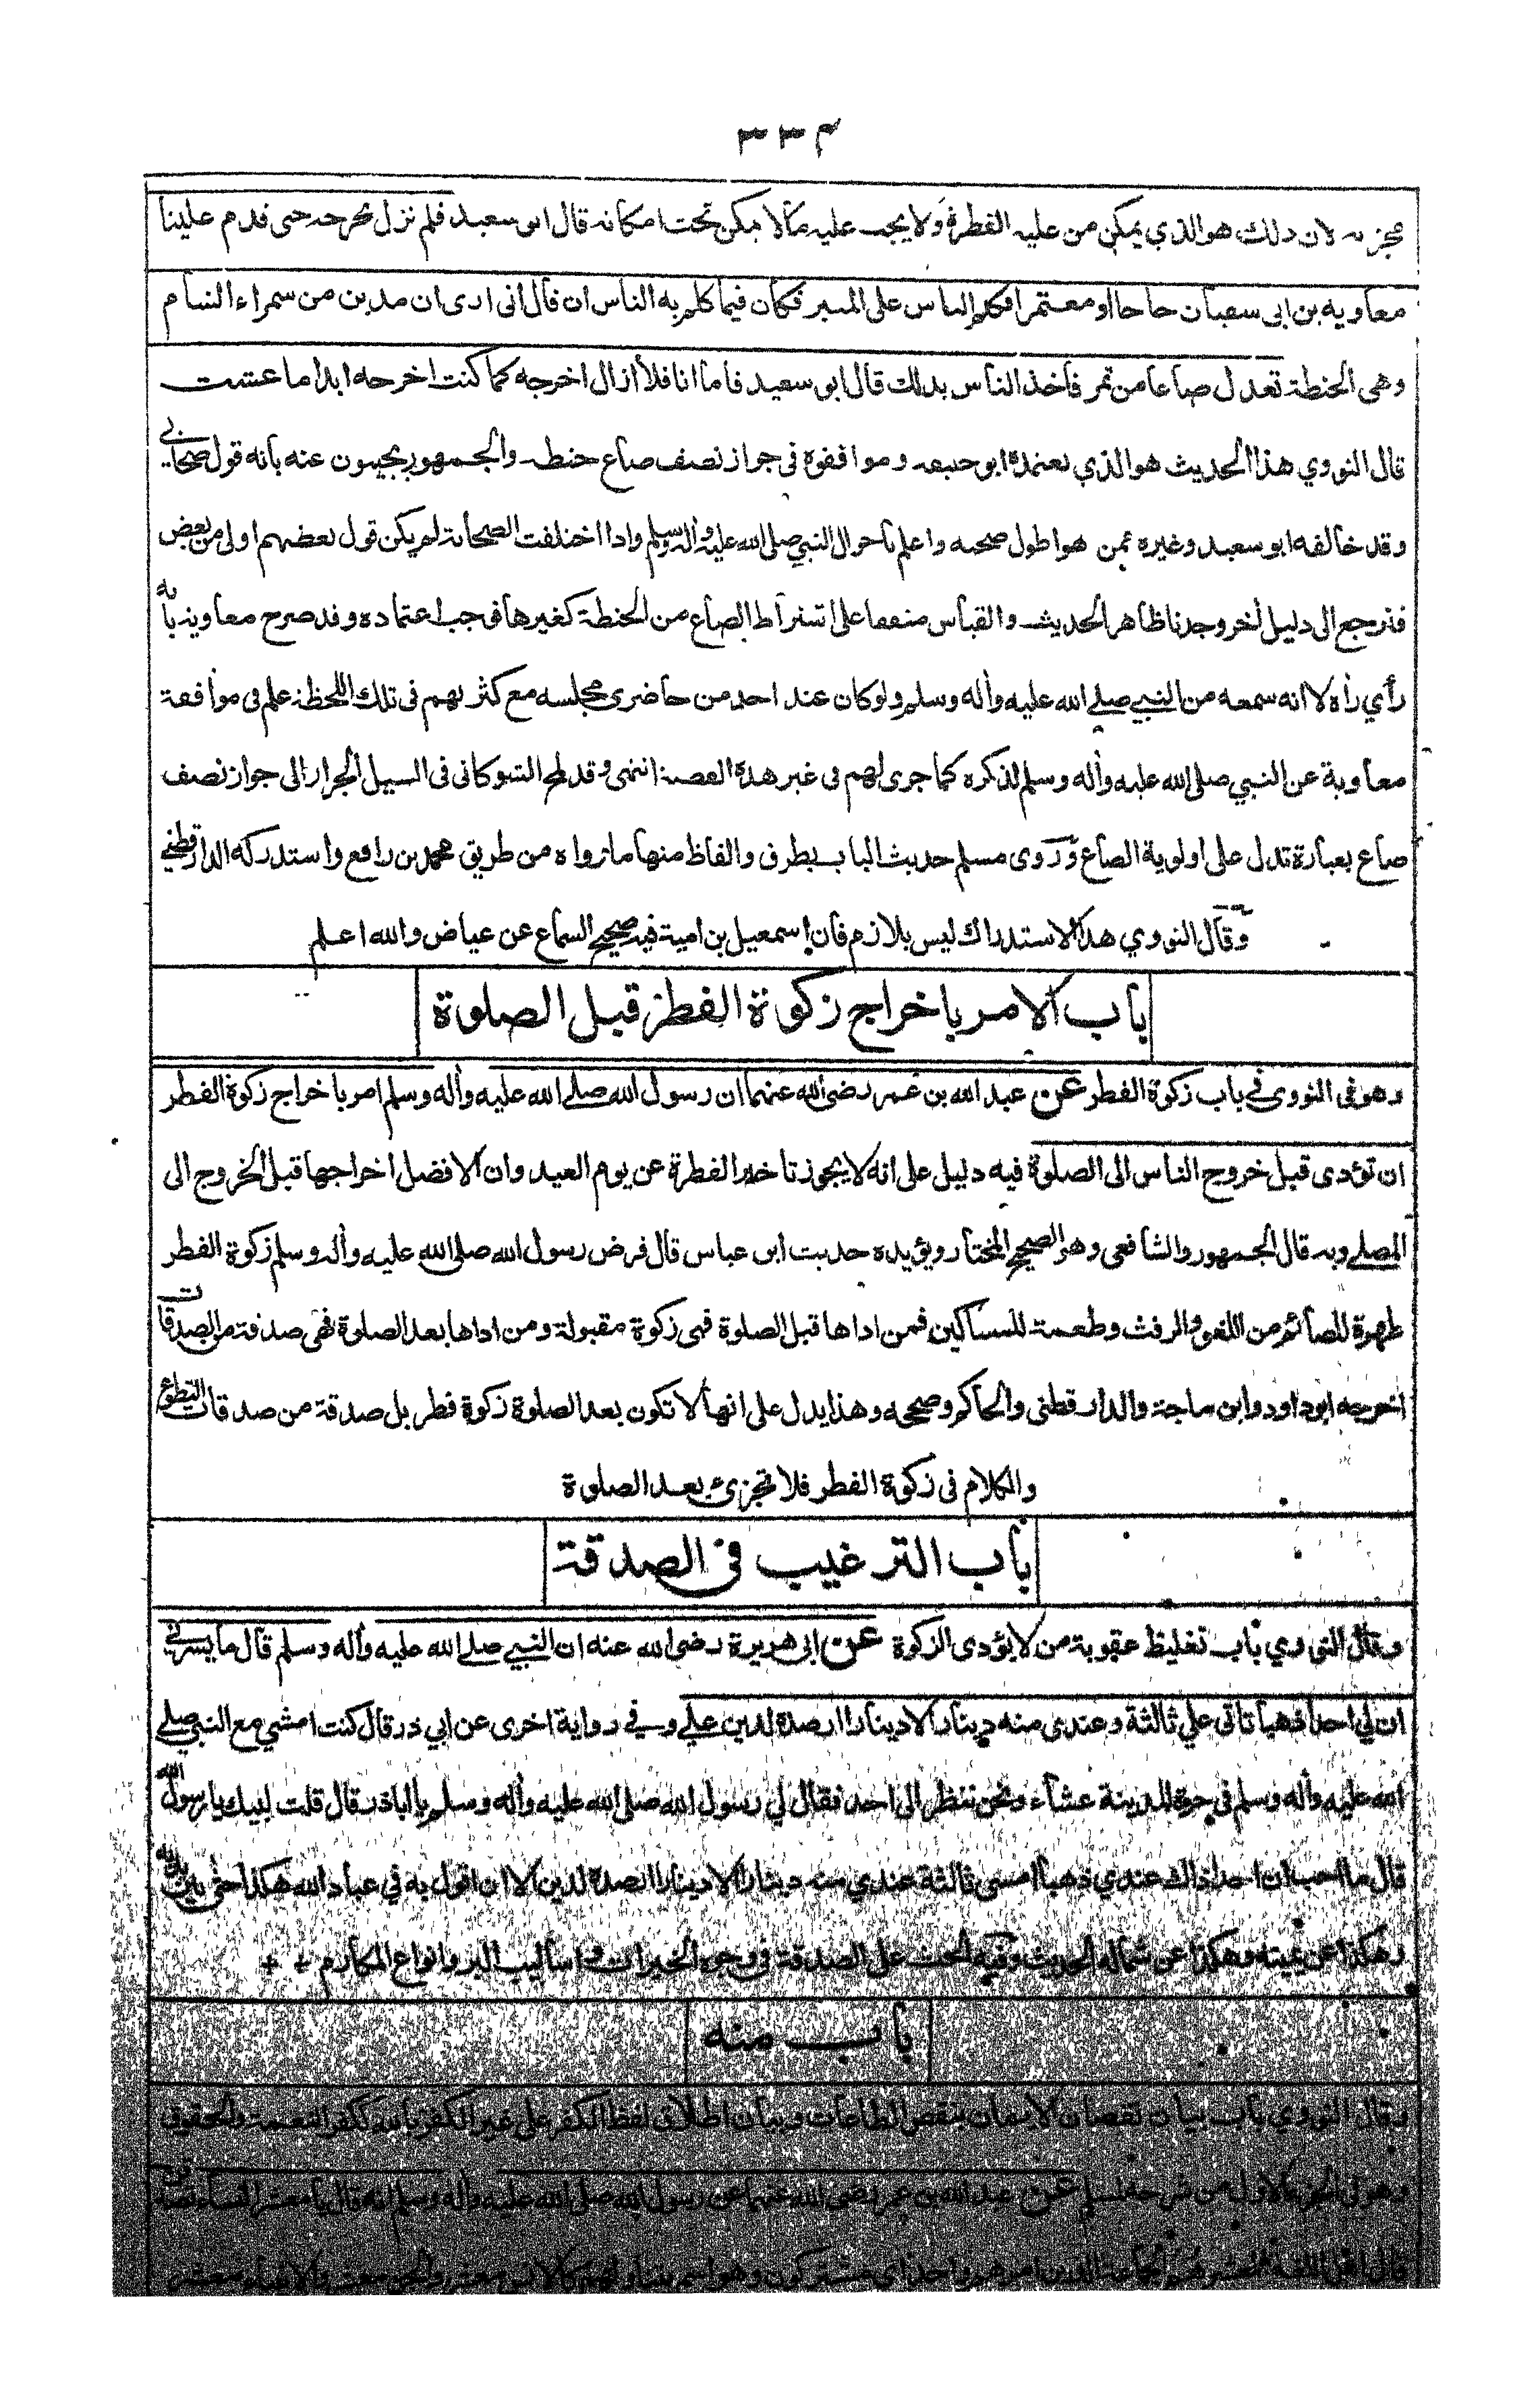 ٣٣٤
يجزيه لان ذلك هو الذي يمكن من عليه الفطرة ولا يجب عليه مالا يمكن تحت امكانه قال ابو سعيد فلم نزل نخرجه حتى قدم علينا
معاوية بن ابى سفيان حاجا او معتمرا فكلم الناس على المنبر فكان فيما كلم به الناس ان قال انى ارى ان مدين من سمراء الشام
وهى الحنطة تعدل صاعا من تمر فاخذ الناس بذلك قال ابو سعيد فاما انا فلا أزال اخرجه كما كنت اخرجه ابدا ما عشت
قال النووي هذا الحديث هو الذي يعتمده ابو حنيفه وموافقوه فى جواز نصف صاع حنطه والجمهور يجيبون عنه بانه قول صحابي
وقد خالفه ابو سعيد وغيره ممن هو اطول صحبه واعلم باحوال النبي صلى الله عليه واله وسلم واذا اختلفت الصحابة لم يكن قول بعضهم اولى من بعض
فنرجع الى دليل أخر وجدنا ظاهر الحديث والقياس متفقا على اشتراط الصاع من الحنطة كغيرها فوجب اعتماده وقد صرح معاوية بانه
رأي رأه لا انه سمعه من النبي صلے الله عليه وأله وسلم ولو كان عند احد من حاضرى مجلسه مع كثرتهم فى تلك اللحظة علم فى موافقة
معاوية عن النبي صلى الله عليه وأله وسلم لذكره كما جرى لهم فى غير هذه القصة انتهى وقد لمح الشوكانى فى السيل الجرار الى جواز نصف
صاع بعبارة تدل على اولوية الصاع وروى مسلم حديث الباب بطرق والفاظ منها ما رواه من طريق محمد بن رافع واستدركه الدارقطنے
وقال النووي هذا الاستدراك ليس بلازم فان اسمعيل بن امية فيه صحيح السماع عن عياض والله اعلم
باب الامر باخراج زكوة الفطر قبل الصلوة
وهو فى النووى في باب زكوة الفطر عن عبد الله بن عمر رضى الله عنهما ان رسول الله صلے الله عليه وأله وسلم امر باخراج زكوة الفطر
ان تؤدى قبل خروج الناس الى الصلوة فيه دليل على انه لا يجوز تاخير الفطرة عن يوم العيد وان الافضل اخراجها قبل الخروج الى
المصلے وبه قال الجمهور والشافعى وهو الصحيح المختار ويؤيده حديث ابن عباس قال فرض رسول الله صلى الله عليه وأله وسلم زكوة الفطر
طهرة للصائم من اللغو والرفث وطعمة للمساكين فمن اداها قبل الصلوة فهى زكوة مقبولة ومن اداها بعد الصلوة فهى صدقة من الصدقات
اخرجه ابو داود وابن ماجة والدارقطنى والحاكم وصححه وهذا يدل على انها لا تكون بعد الصلوة زكوة فطر بل صدقة من صدقات التطوع
والكلام فى زكوة الفطر فلا تجزئ بعد الصلوة
باب الترغيب فى الصدقة
وقال النووي باب تغليظ عقوبة من لا يؤدى الزكوة عن ابى هريرة رضى الله عنه ان النبي صلے الله عليه وأله وسلم قال ما يسرني
ان لي احدا ذهبا تاتى علي ثالثة وعندى منه دينار الا دينارا ارصده لدين علے وفي رواية اخرى عن ابي ذر قال كنت امشي مع النبي صلے
الله عليه وأله وسلم فى حرة المدينة عشاء ونحن ننظر الى احد فقال لي رسول الله صلى الله عليه وأله وسلم يا ابا ذر قال قلت لبيك يا رسول الله
قال ما احب ان احدا ذاك عندي ذهبا امسى ثالثة عندي منه دينار الا دينارا ارصده لدين الا ان اقول به في عباد الله هكذا حثى بين يديه
وهكذا عن يمينه وهكذا عن شماله الحديث وفيه الحث على الصدقة فى وجوه الخيرات و اساليب البر وانواع المكارم
باب منه
وقال النووي باب بيان نقصان الايمان بنقص الطاعات وبيان اطلاق لفظ الكفر على غير الكفر بالله ككفر النعمة والحقوق
وهو فى الجزء الاول من شرحه لمسلم عن عبد الله بن عمر رضى الله عنهما عن رسول الله صلى الله عليه وأله وسلم انه قال يا معشر النساء تصدقن
قال اهل اللغة المعشر هم الجماعة الذين امرهم واحد اي مشتركون وهو اسم يتناولهم كالانس معشر والجن معشر والانبياء معشر